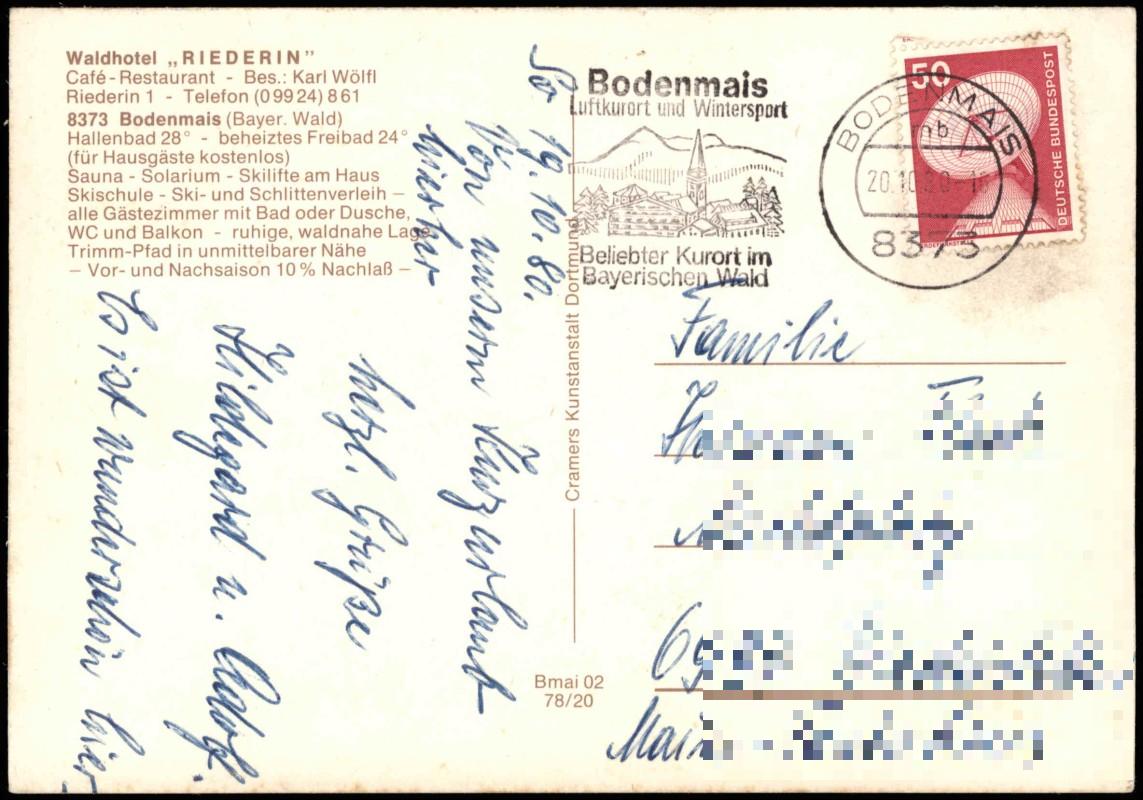 Waldhotel „RIEDERIN”
Café - Restaurant - Bes.: Karl Wölfl
Riederin 1 - Telefon (0 99 24) 8 61
8373 Bodenmais (Bayer. Wald)
Hallenbad 28° - beheiztes Freibad 24°
(für Hausgäste kostenlos)
Sauna - Solarium - Skilifte am Haus
Skischule - Ski- und Schlittenverleih –
alle Gästezimmer mit Bad oder Dusche,
WC und Balkon - ruhige, waldnahe Lage
Trimm-Pfad in unmittelbarer Nähe
– Vor- und Nachsaison 10 % Nachlaß –
So 19. 10. 80.
Von unserm Kurzurlaub
hzl. Grüße
Hildegard u. Adolf.
Es ist wunderschön hier
Cramers Kunstanstalt Dortmund
Bmai 02
78/20
Bodenmais
Luftkurort und Wintersport
Beliebter Kurort im
Bayerischen Wald
BODENMAIS
mb
8373
50
DEUTSCHE BUNDESPOST
Familie